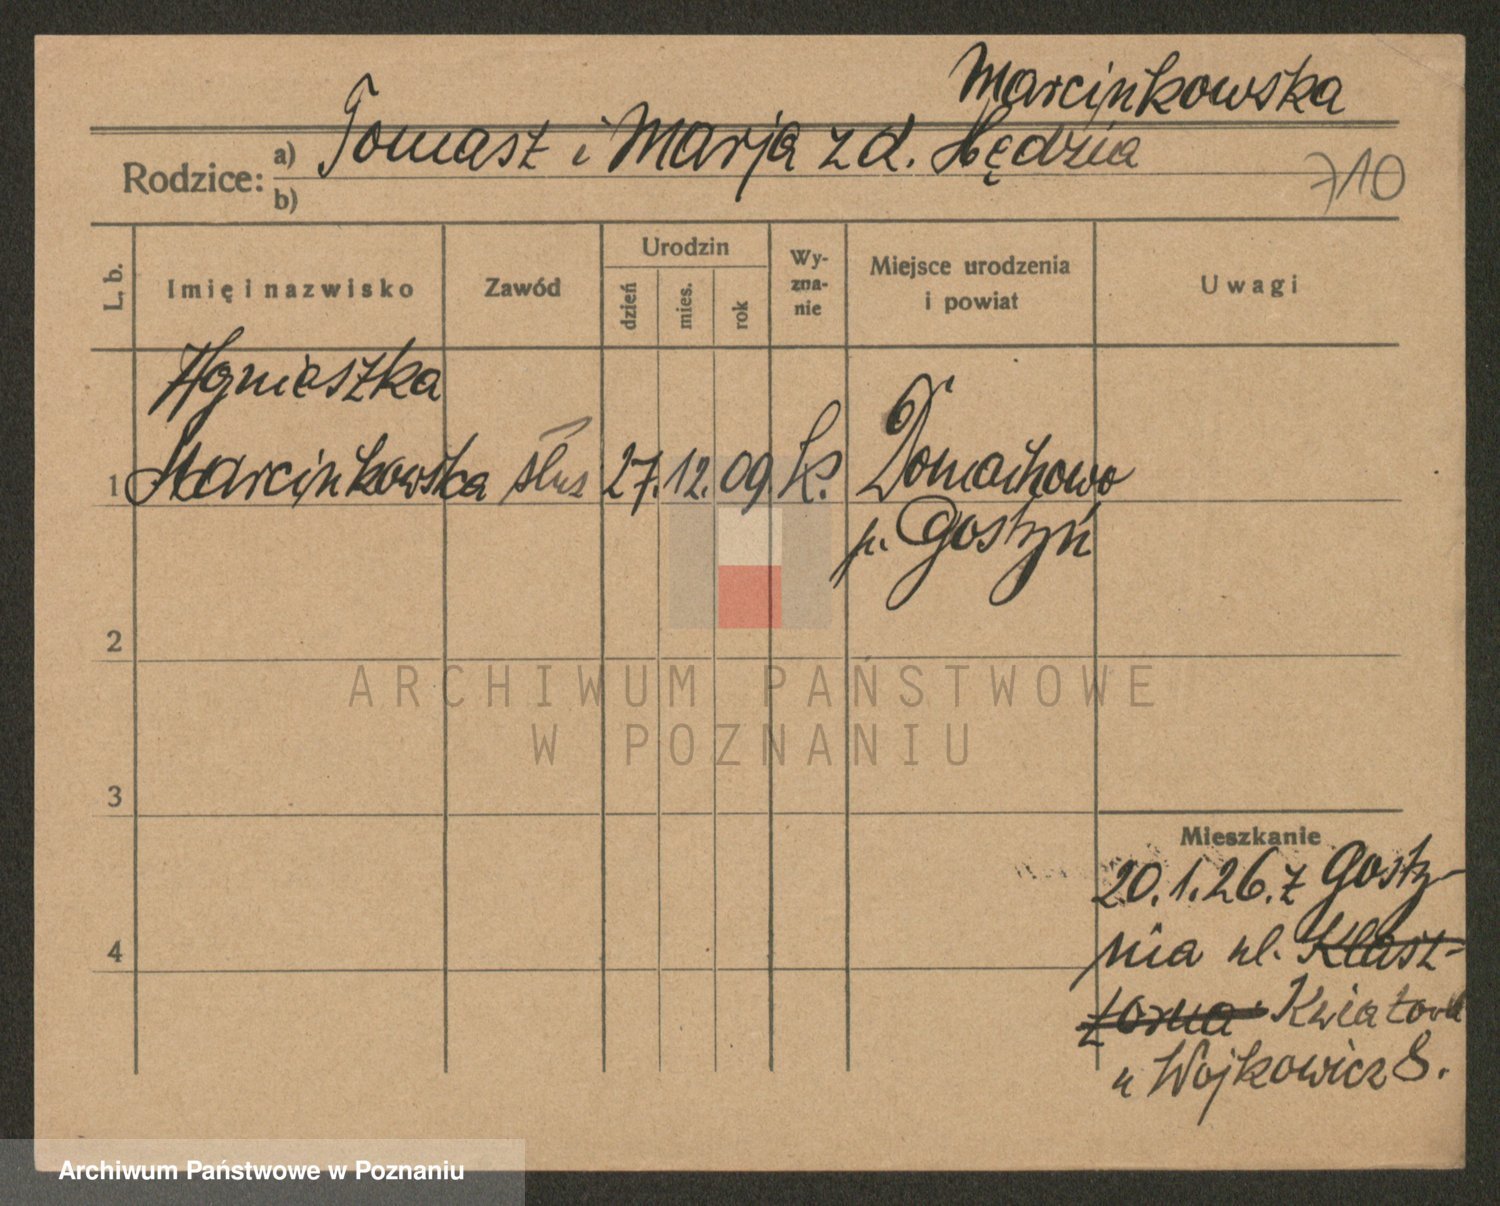 Marcinkowska
Rodzice: a) Tomasz i Marja z d. Hędzia
b)
710
L. b.
Imię i nazwisko
Zawód
Urodzin
dzień
mies.
rok
Wy-
zna-
nie
Miejsce urodzenia
i powiat
Uwagi
Agnieszka
1 Marcinkowska służ 27. 12. 09 k. Domachowo
p. Gostyń
2
ARCHIWUM PAŃSTWOWE
W POZNANIU
3
Mieszkanie
20.1.26. z Gosty-
nia ul. Klasz-
4
torna Kwiatowa
u Wojkowicz 8.
Archiwum Państwowe w Poznaniu